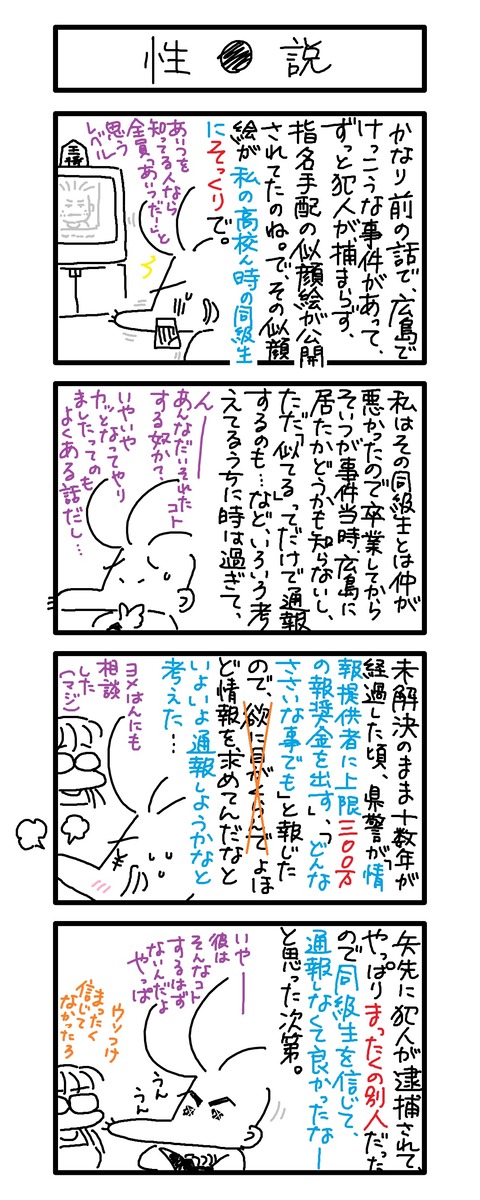 性●説
かなり前の話で、広島で
けっこうな事件があって、
ずっと犯人が捕まらず、
指名手配の似顔絵が公開
されてたのね。で、その似顔
絵が私の高校ん時の同級生
にそっくりで。
あいつを
知ってる人なら
全員「あいつだー!」と
思う
レベル
王将
私はその同級生とは仲が
悪かったので卒業してから
そいつが事件当時、広島に
居たかどうかも知らないし、
ただ「似てる」ってだけで通報
するのも…など、いろいろ考
えてるうちに時は過ぎて、
んー
あんなだいそれたコト
する奴か?
いやいや
カッとなってやり
ましたってのも
よくある話だし…
未解決のまま十数年が
経過した頃、県警が「情
報提供者に上限三〇〇万
の報奨金を出す」、「どんな
ささいな事でも」と報じた
ので、欲に目がくらんでよほ
ど情報を求めてんだなと
いよいよ通報しようかなと
考えた…
ヨメはんにも
相談
した
(マジ)
矢先に犯人が逮捕されて、
やっぱりまったくの別人だった
ので同級生を信じて、
通報しなくて良かったなー
と思った次第。
いやー
彼は
そんなコト
するはず
ないんだよ
やっぱ
うん
うん
ウソつけ
まったく
信じて
なかったろ